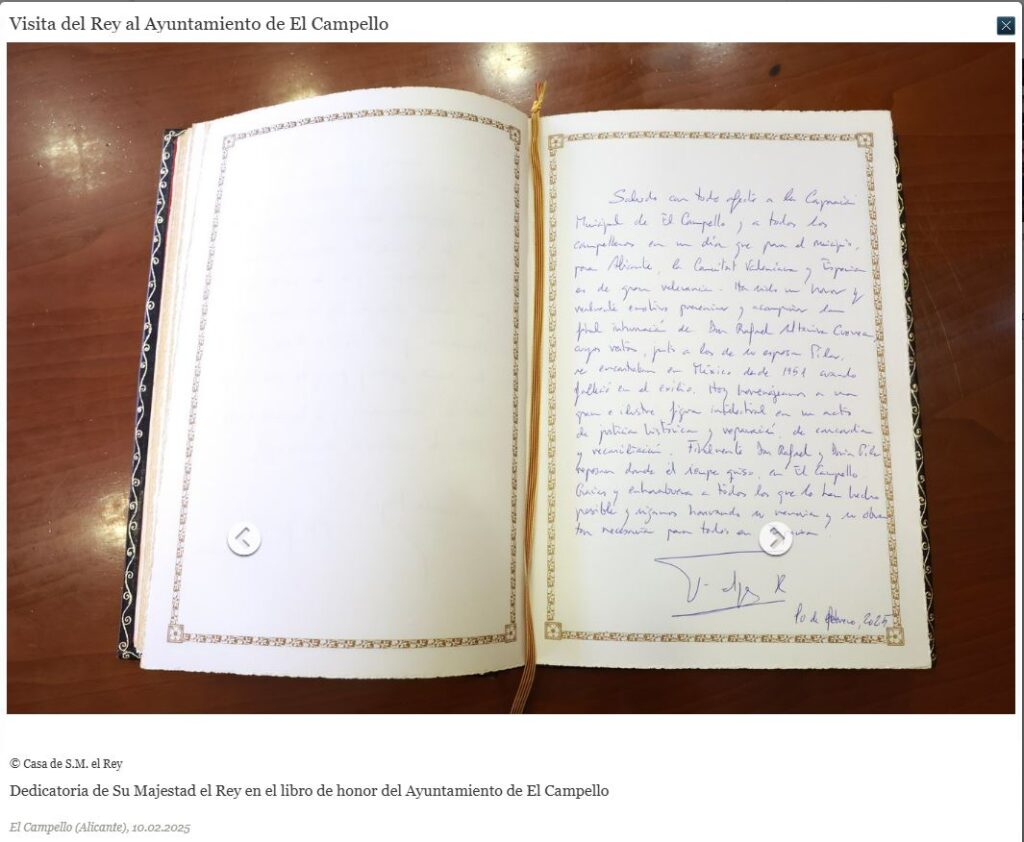 Visita del Rey al Ayuntamiento de El Campello
Saludo con todo afecto a la Corporación
Municipal de El Campello y a todos los
campelleros en un día que para el municipio,
para Alicante, la Comunitat Valenciana y España
es de gran relevancia. Ha sido un honor y
realmente emotivo presenciar y acompañar la
final inhumación de Don Rafael Altamira Crevea
cuyos restos, junto a los de su esposa Pilar,
se encontraban en México desde 1951 cuando
falleció en el exilio. Hoy homenajeamos a una
gran e ilustre figura intelectual en un acto
de justicia histórica y reparación, de concordia
y reconciliación. Finalmente Don Rafael y Doña Pilar
reposan donde él siempre quiso, en El Campello.
Gracias y enhorabuena a todos los que lo han hecho
posible y sigamos honrando su memoria y su obra
tan necesaria para todos en
Felipe R
10 de febrero, 2025
© Casa de S.M. el Rey
Dedicatoria de Su Majestad el Rey en el libro de honor del Ayuntamiento de El Campello
El Campello (Alicante), 10.02.2025